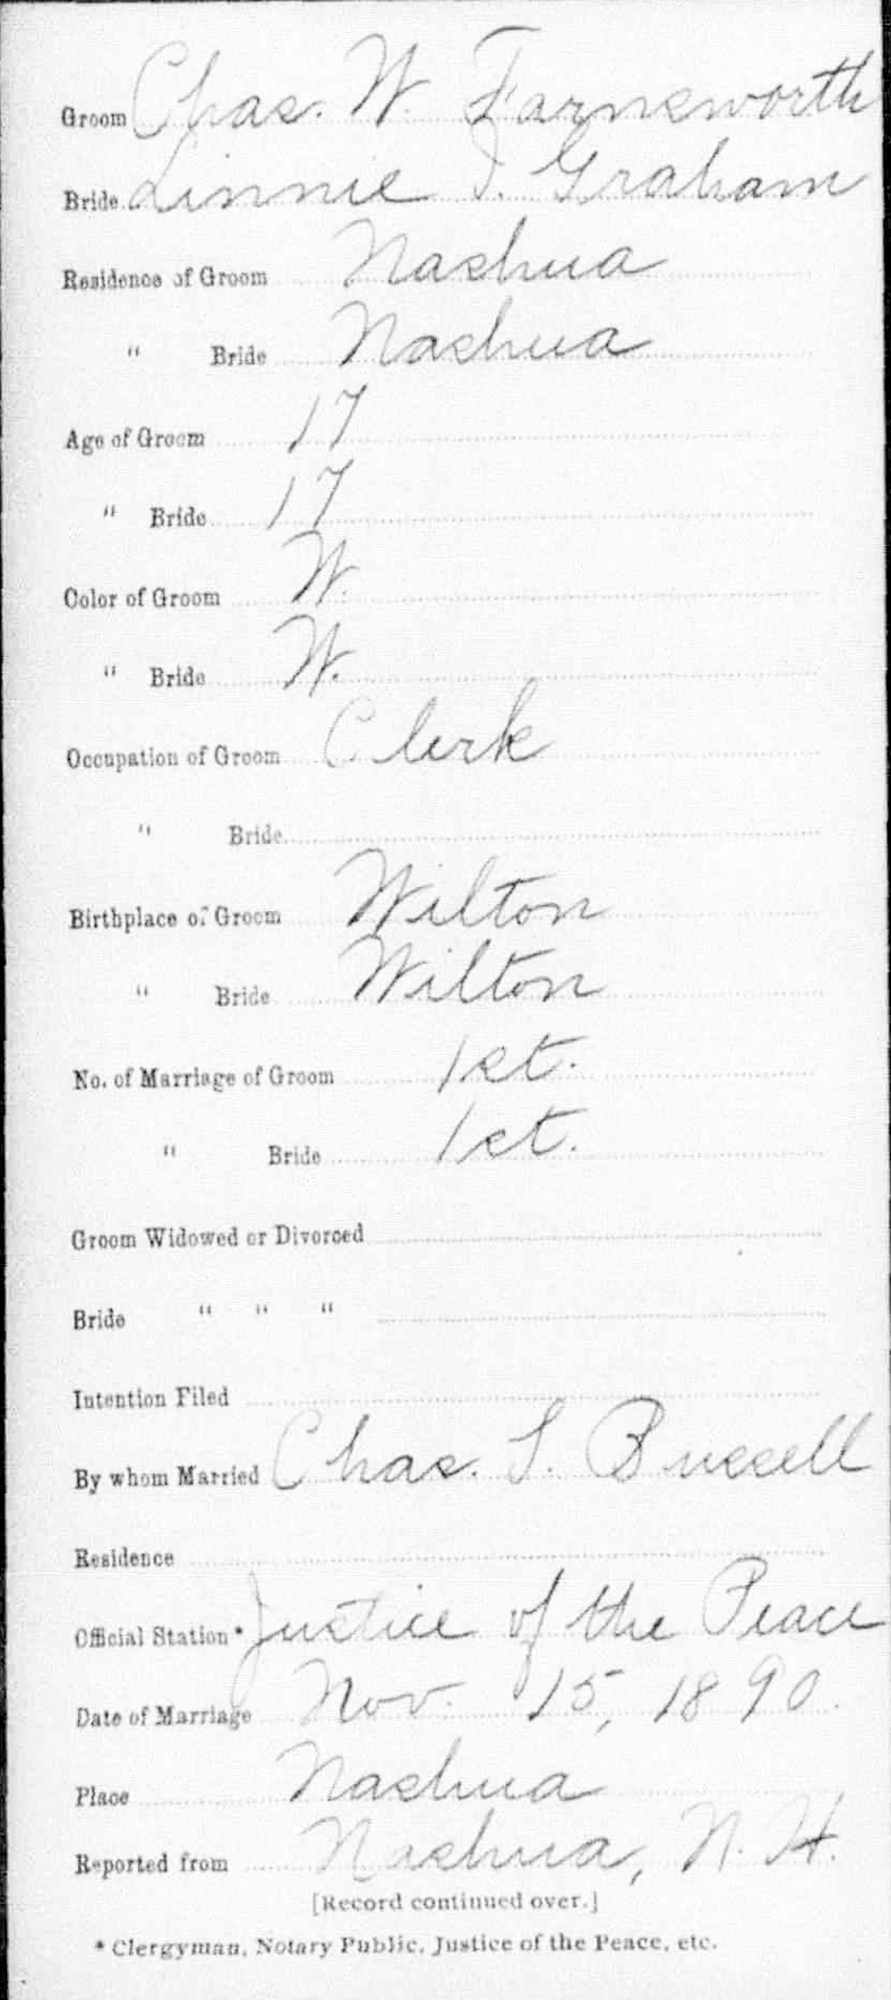 Groom Chas. W. Farnsworth
Bride Linnie J. Graham
Residence of Groom Nashua
" Bride Nashua
Age of Groom 17
" Bride 17
Color of Groom W.
" Bride W.
Occupation of Groom Clerk
" Bride
Birthplace of Groom Wilton
" Bride Wilton
No. of Marriage of Groom 1st.
" Bride 1st.
Groom Widowed or Divorced
Bride " " "
Intention Filed
By whom Married Chas. S. Bussell
Residence
Official Station* Justice of the Peace
Date of Marriage Nov. 15, 1890.
Place Nashua
Reported from Nashua, N. H.
[Record continued over.]
* Clergyman, Notary Public, Justice of the Peace, etc.